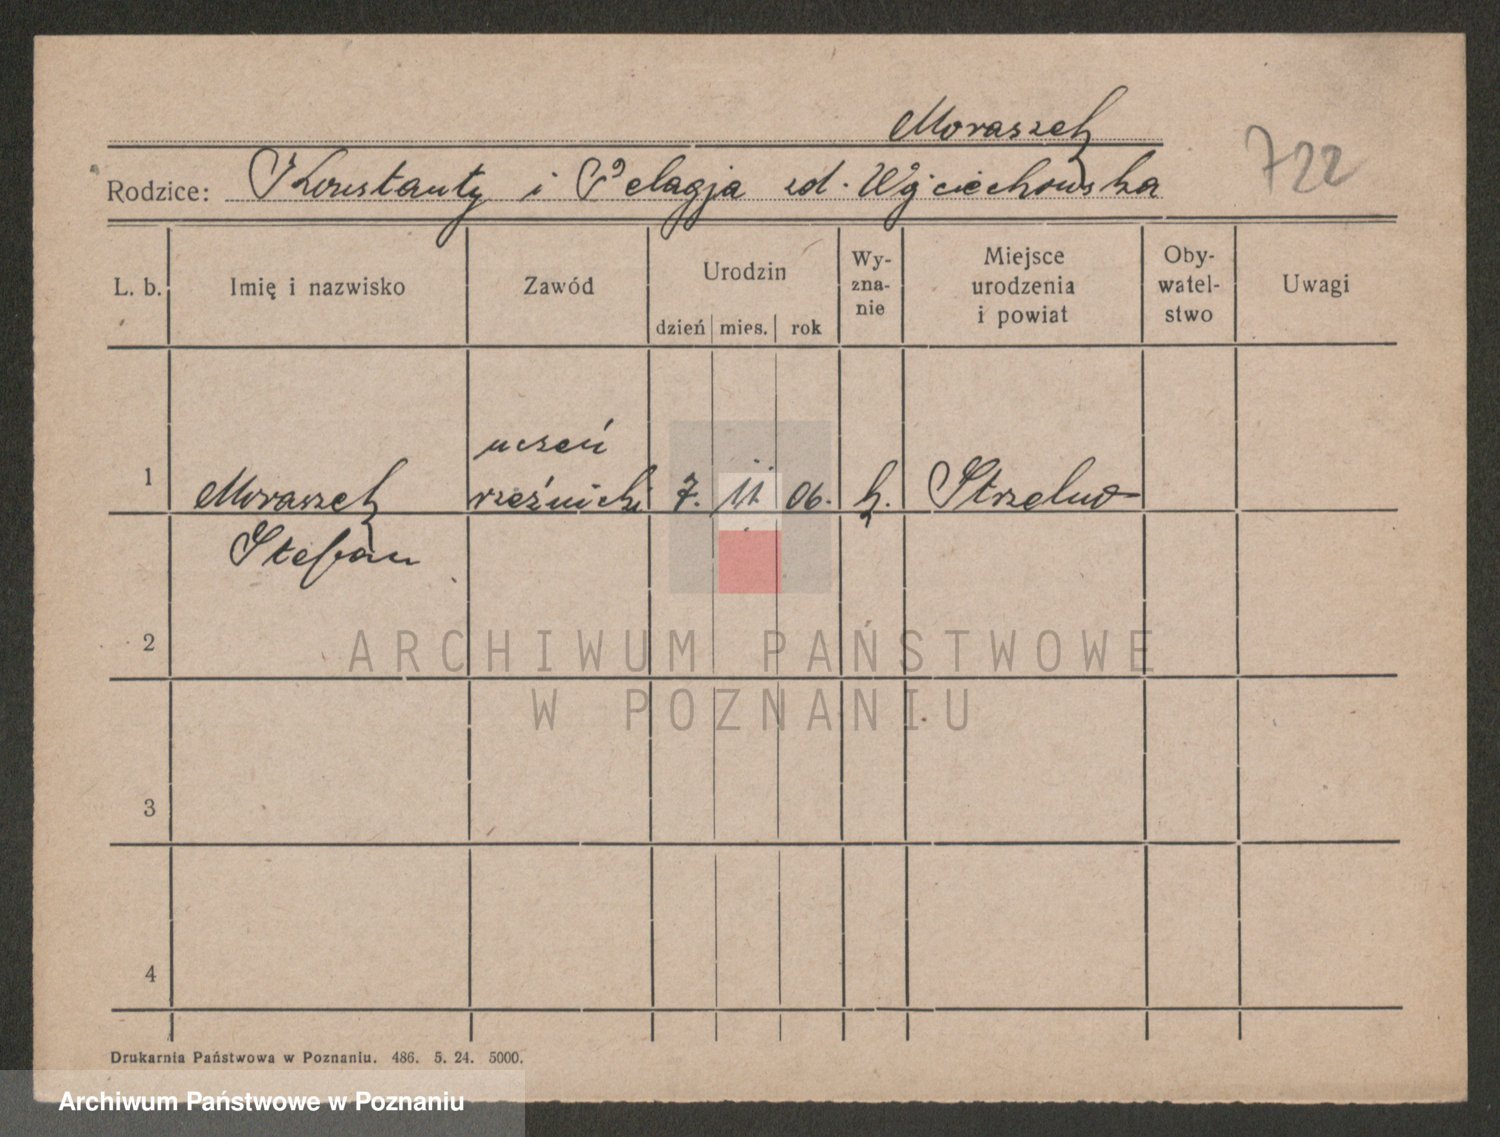 Moraszek
722
Rodzice: Konstanty i Pelagja zd. Wojciechowska
L. b. Imię i nazwisko Zawód Urodzin dzień mies. rok Wy- zna- nie Miejsce urodzenia i powiat Oby- watel- stwo Uwagi
uczeń
1 Moraszek rzeźnicki 7. 11. 06. k. Strzelno
Stefan
2
ARCHIWUM PAŃSTWOWE
W POZNANIU
3
4
Drukarnia Państwowa w Poznaniu. 486. 5. 24. 5000.
Archiwum Państwowe w Poznaniu